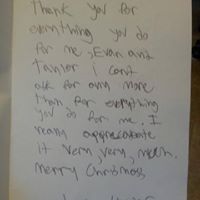 Thank you for
everything you do
for me, Evan and
Taylor i cant
ask for any more
than for everything
you do for me. I
really appreceate
it very, very, much.
merry Christmass